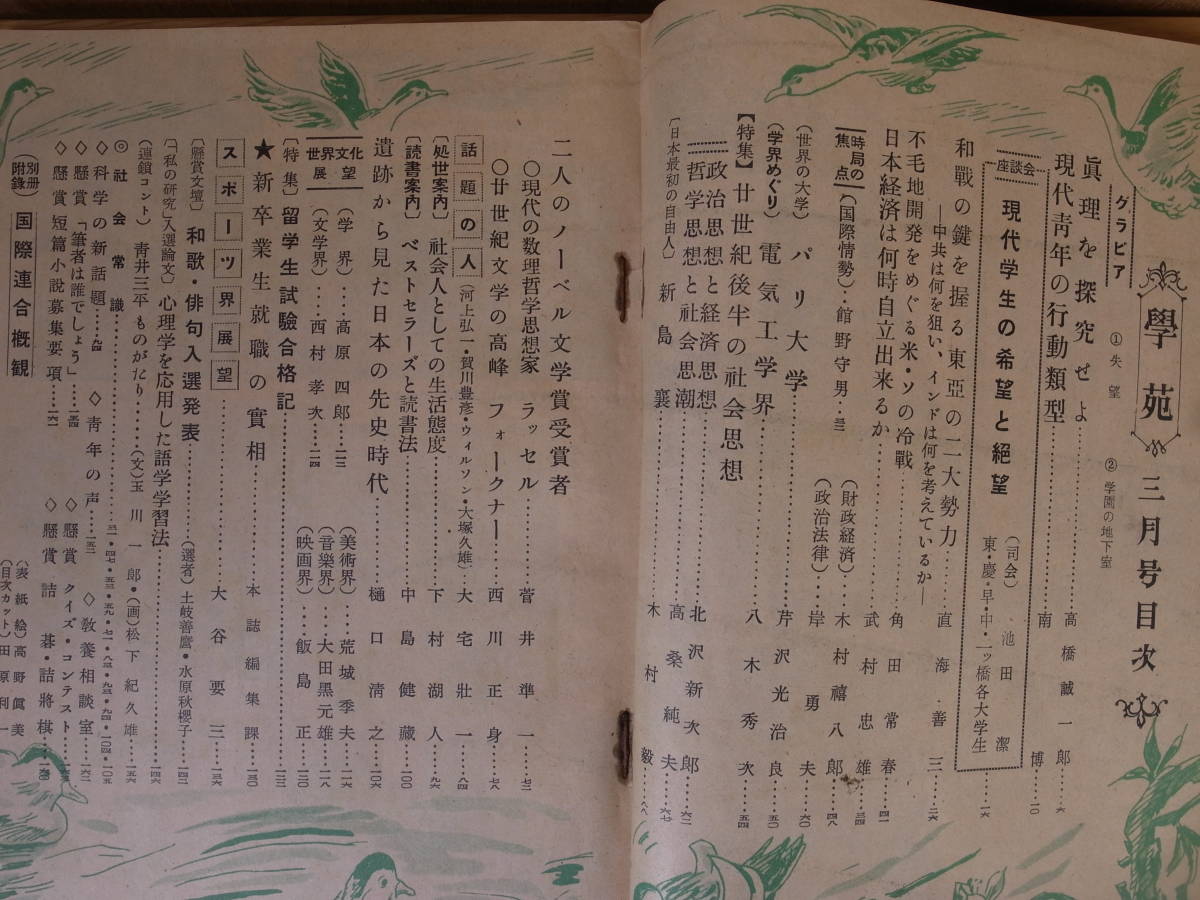 學苑 三月号目次
グラビア ①失望 ②学園の地下室
眞理を探究せよ……高橋誠一郎…六
現代靑年の行動類型……南 博…一〇
座談会 現代学生の希望と絶望 (司会) 池田 潔 東・慶・早・中・一ッ橋各大学生…一六
和戰の鍵を握る東亞の二大勢力……直海善三…二六
―中共は何を狙い、インドは何を考えているか―
不毛地開発をめぐる米・ソの冷戰……角田常春…四一
日本経済は何時自立出来るか……武村忠雄…三四
時局の焦点 〔国際情勢〕・館野守男・三三 (財政経済)・木村禧八郎…四八
(政治法律)・岸 勇夫…六〇
(世界の大学) パリ大学……芹沢光治良…五〇
(学界めぐり) 電気工学界……八木秀次…五四
【特集】廿世紀後半の社会思想
政治思想と経済思想……北沢新次郎…六二
哲学思想と社会思潮……高桑純夫…六七
〔日本最初の自由人〕 新島 襄……木村 毅…八八
二人のノーベル文学賞受賞者
○現代の数理哲学思想家 ラッセル……菅井準一…七二
○廿世紀文学の高峰 フォークナー……西川正身…七八
話題の人 (河上弘一・賀川豊彦・ウィルソン・大塚久雄)…大宅壯一…八四
〔処世案内〕 社会人としての生活態度……下村湖人…九六
〔読書案内〕 ベストセラーズと読書法……中島健藏…一〇〇
遺跡から見た日本の先史時代……樋口清之…一〇六
世界文化展望 (学界)……高原四郎…一一二 (美術界)…荒城季夫…一一六
(文学界)…西村孝次…一一四 (音樂界)…大田黑元雄…一一八
(映画界)…飯島 正…一二〇
〔特集〕 留学生試驗合格記……一二二
★新卒業生就職の實相……本誌編集課…一三〇
スポーツ界展望……大谷要三…一三六
〔懸賞文壇〕 和歌・俳句入選発表……(選者)土岐善麿・水原秋櫻子…一四二
〔「私の研究」入選論文〕 心理学を応用した語学学習法……一四六
(連鎖コント) 靑井三平ものがたり……(文)玉川一郎・(画)松下紀久雄…一五六
◎社会常識……三一・四七・五三・五九・七一・八三・九五・九四・一〇四・一〇五
◇科学の新話題……九四 ◇靑年の声…一五二 ◇敎養相談室…一六二
◇懸賞「筆者は誰でしょう」……一五四 ◇懸賞 クイズ・コンテスト…一五五
◇懸賞短篇小説募集要項……一六一 ◇懸賞 詰碁・詰將棋…一六〇
(別冊附錄) 国際連合概観
(表紙絵)高野眞美
(目次カット)田原利一